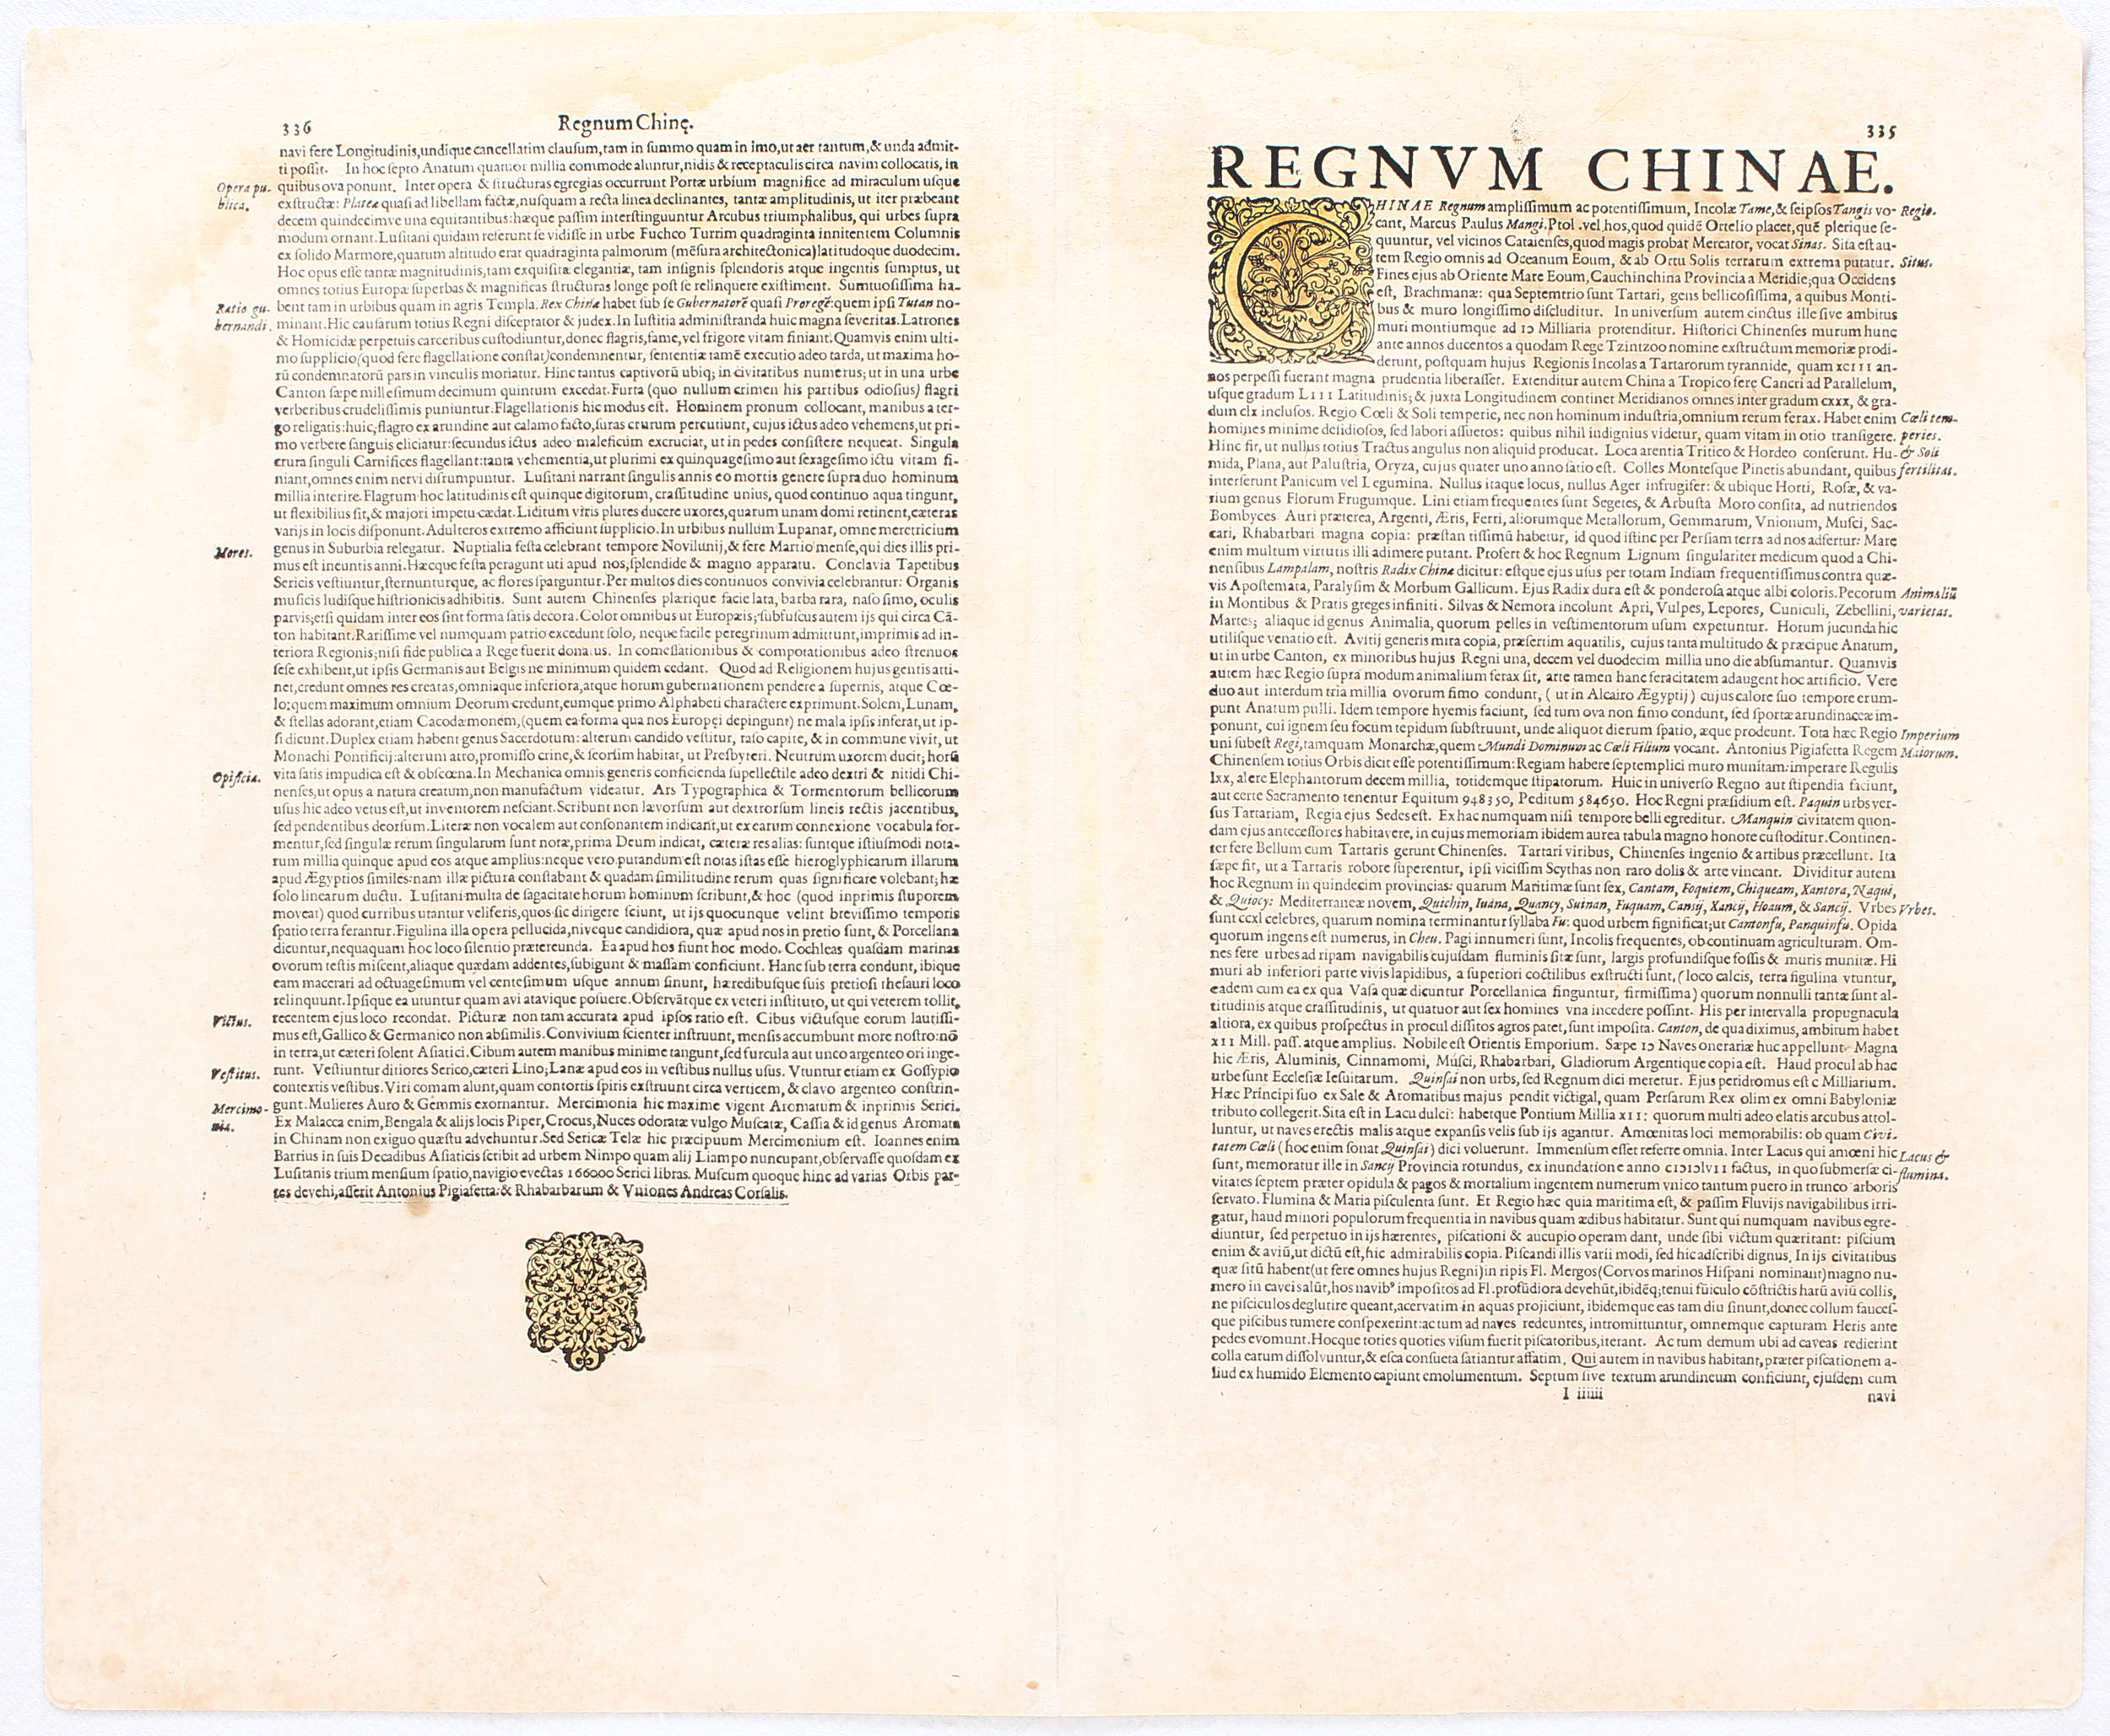 336
Regnum Chinę.
navi fere Longitudinis,undique cancellatim clauſum,tam in ſummo quam in imo,ut aer tantum,& unda admit-
ti poſſit. In hoc ſepto Anatum quatuor millia commode aluntur,nidis & receptaculis circa navim collocatis, in
Opera pu-
blica.
quibus ova ponunt. Inter opera & ſtructuras egregias occurrunt Portæ urbium magnifice ad miraculum uſque
exſtructæ: Plateæ quaſi ad libellam factæ,nuſquam a recta linea declinantes, tantæ amplitudinis, ut iter præbeant
decem quindecimve una equitantibus:hæque paſſim interſtinguuntur Arcubus triumphalibus, qui urbes ſupra
modum ornant.Luſitani quidam referunt ſe vidiſſe in urbe Fuchco Turrim quadraginta innitentem Columnis
ex ſolido Marmore,quarum altitudo erat quadraginta palmorum (mẽſura architectonica)latitudoque duodecim.
Hoc opus eſſe tantæ magnitudinis,tam exquiſitæ elegantiæ, tam inſignis ſplendoris atque ingentis ſumptus, ut
omnes totius Europæ ſuperbas & magnificas ſtructuras longe poſt ſe relinquere exiſtiment. Sumtuoſiſſima ha-
Ratio gu-
bernandi.
bent tam in urbibus quam in agris Templa. Rex Chinæ habet ſub ſe Gubernatorẽ quaſi Proregẽ:quem ipſi Tutan no-
minant.Hic cauſarum totius Regni diſceptator & judex.In Iuſtitia adminiſtranda huic magna ſeveritas.Latrones
& Homicidæ perpetuis carceribus cuſtodiuntur,donec flagris,fame,vel frigore vitam finiant.Quamvis enim ulti-
mo ſupplicio(quod fere flagellatione conſtat)condemnentur, ſententiæ tamẽ executio adeo tarda, ut maxima ho-
rũ condemnatorũ pars in vinculis moriatur. Hinc tantus captivorũ ubiq; in civitatibus numerus; ut in una urbe
Canton ſæpe milleſimum decimum quintum excedat.Furta (quo nullum crimen his partibus odioſius) flagri
verberibus crudeliſſimis puniuntur.Flagellationis hic modus eſt. Hominem pronum collocant, manibus a ter-
go religatis:huic,flagro ex arundine aut calamo facto,ſuras crurum percutiunt, cujus ictus adeo vehemens,ut pri-
mo verbere ſanguis eliciatur:ſecundus ictus adeo maleficum excruciat, ut in pedes conſiſtere nequeat. Singula
crura ſinguli Carnifices flagellant:tanta vehementia,ut plurimi ex quinquageſimo aut ſexageſimo ictu vitam fi-
niant,omnes enim nervi diſrumpuntur. Luſitani narrant ſingulis annis eo mortis genere ſupra duo hominum
millia interire. Flagrum hoc latitudinis eſt quinque digitorum, craſſitudine unius, quod continuo aqua tingunt,
ut flexibilius ſit,& majori impetu cædat.Licitum viris plures ducere uxores,quarum unam domi retinent,cæteras
varijs in locis diſponunt.Adulteros extremo afficiunt ſupplicio.In urbibus nullum Lupanar, omne meretricium
Mores.
genus in Suburbia relegatur. Nuptialia feſta celebrant tempore Novilunij,& fere Martio menſe,qui dies illis pri-
mus eſt ineuntis anni.Hæcque feſta peragunt uti apud nos,ſplendide & magno apparatu. Conclavia Tapetibus
Sericis veſtiuntur,ſternunturque, ac flores ſparguntur.Per multos dies continuos convivia celebrantur: Organis
muſicis ludiſque hiſtrionicis adhibitis. Sunt autem Chinenſes plærique facie lata, barba rara, naſo ſimo, oculis
parvis;etſi quidam inter eos ſint forma ſatis decora.Color omnibus ut Europæis;ſubfuſcus autem ijs qui circa Cã-
ton habitant.Rariſſime vel numquam patrio excedunt ſolo, neque facile peregrinum admittunt,imprimis ad in-
teriora Regionis;niſi fide publica a Rege fuerit donatus. In comeſſationibus & compotationibus adeo ſtrenuos
ſeſe exhibent,ut ipſis Germanis aut Belgis ne minimum quidem cedant. Quod ad Religionem hujus gentis atti-
net,credunt omnes res creatas,omniaque inferiora,atque horum gubernationem pendere a ſupernis, atque Cœ-
lo:quem maximum omnium Deorum credunt,eumque primo Alphabeti charactere exprimunt.Solem,Lunam,
& ſtellas adorant,etiam Cacodæmonem,(quem ea forma qua nos Europęi depingunt) ne mala ipſis inferat,ut ip-
ſi dicunt.Duplex etiam habent genus Sacerdotum: alterum candido veſtitur, raſo capite, & in commune vivit, ut
Monachi Pontificij:alterum atro,promiſſo crine,& ſeorſim habitat, ut Preſbyteri. Neutrum uxorem ducit; horũ
Opificia.
vita ſatis impudica eſt & obſcœna.In Mechanica omnis generis conficienda ſupellectile adeo dextri & nitidi Chi-
nenſes,ut opus a natura creatum,non manufactum videatur. Ars Typographica & Tormentorum bellicorum
uſus hic adeo vetus eſt,ut inventorem neſciant.Scribunt non lævorſum aut dextrorſum lineis rectis jacentibus,
ſed pendentibus deorſum.Literæ non vocalem aut conſonantem indicant,ut ex earum connexione vocabula for-
mentur,ſed ſingulæ rerum ſingularum ſunt notæ,prima Deum indicat, cæteræ res alias: ſuntque iſtiuſmodi nota-
rum millia quinque apud eos atque amplius:neque vero putandum eſt notas iſtas eſſe hieroglyphicarum illarum
apud Ægyptios ſimiles:nam illæ pictura conſtabant & quadam ſimilitudine rerum quas ſignificare volebant; hæ
ſolo linearum ductu. Luſitani multa de ſagacitate horum hominum ſcribunt,& hoc (quod inprimis ſtuporem
moveat) quod curribus utantur veliferis,quos ſic dirigere ſciunt, ut ijs quocunque velint breviſſimo temporis
ſpatio terra ferantur.Figulina illa opera pellucida,niveque candidiora, quæ apud nos in pretio ſunt, & Porcellana
dicuntur,nequaquam hoc loco ſilentio prætereunda. Ea apud hos fiunt hoc modo. Cochleas quaſdam marinas
ovorum teſtis miſcent,aliaque quædam addentes,ſubigunt & maſſam conficiunt. Hanc ſub terra condunt, ibique
eam macerari ad octuageſimum vel centeſimum uſque annum ſinunt, hæredibuſque ſuis pretioſi theſauri loco
relinquunt.Ipſique ea utuntur quam avi atavique poſuere.Obſervãtque ex veteri inſtituto, ut qui veterem tollit,
Victus.
recentem ejus loco recondat. Picturæ non tam accurata apud ipſos ratio eſt. Cibus victuſque eorum lautiſſi-
mus eſt,Gallico & Germanico non abſimilis.Convivium ſcienter inſtruunt, menſis accumbunt more noſtro:nõ
in terra,ut cæteri ſolent Aſiatici.Cibum autem manibus minime tangunt,ſed furcula aut unco argenteo ori inge-
Veſtitus.
runt. Veſtiuntur ditiores Serico,cæteri Lino;Lanæ apud eos in veſtibus nullus uſus. Vtuntur etiam ex Goſſypio
contextis veſtibus.Viri comam alunt,quam contortis ſpiris exſtruunt circa verticem, & clavo argenteo conſtrin-
Mercimo-
nia.
gunt.Mulieres Auro & Gemmis exornantur. Mercimonia hic maxime vigent Aromatum & inprimis Serici.
Ex Malacca enim,Bengala & alijs locis Piper,Crocus,Nuces odoratæ vulgo Muſcatæ, Caſſia & id genus Aromata
in Chinam non exiguo quæſtu advehuntur.Sed Sericæ Telæ hic præcipuum Mercimonium eſt. Ioannes enim
Barrius in ſuis Decadibus Aſiaticis ſcribit ad urbem Nimpo quam alij Liampo nuncupant,obſervaſſe quoſdam ex
Luſitanis trium menſium ſpatio,navigio evectas 166000 Serici libras. Muſcum quoque hinc ad varias Orbis par-
tes devehi,aſſerit Antonius Pigiafetta:& Rhabarbarum & Vniones Andreas Corſalis.
335
REGNVM CHINAE.
CHINAE Regnum ampliſſimum ac potentiſſimum, Incolæ Tame,& ſeipſos Tangis vo-
Regio.
cant, Marcus Paulus Mangi.Ptol.vel hos,quod quidẽ Ortelio placet,quẽ plerique ſe-
quuntur, vel vicinos Cataienſes,quod magis probat Mercator, vocat Sinas. Sita eſt au-
tem Regio omnis ad Oceanum Eoum, & ab Ortu Solis terrarum extrema putatur.
Situs.
Fines ejus ab Oriente Mare Eoum,Cauchinchina Provincia a Meridie;qua Occidens
eſt, Brachmanæ: qua Septemtrio ſunt Tartari, gens bellicoſiſſima, a quibus Monti-
bus & muro longiſſimo diſcluditur. In univerſum autem cinctus ille ſive ambitus
muri montiumque ad IↃ Milliaria protenditur. Hiſtorici Chinenſes murum hunc
ante annos ducentos a quodam Rege Tzintzoo nomine exſtructum memoriæ prodi-
derunt, poſtquam hujus Regionis Incolas a Tartarorum tyrannide, quam XCIII an-
nos perpeſſi fuerant magna prudentia liberaſſet. Extenditur autem China a Tropico ferę Cancri ad Parallelum,
uſque gradum LIII Latitudinis; & juxta Longitudinem continet Meridianos omnes inter gradum cxxx, & gra-
dum clx incluſos. Regio Cœli & Soli temperie, nec non hominum induſtria,omnium rerum ferax. Habet enim
Cœli tem-
peries.
& Soli
fertilitas.
homines minime deſidioſos, ſed labori aſſuetos: quibus nihil indignius videtur, quam vitam in otio tranſigere.
Hinc fit, ut nullus totius Tractus angulus non aliquid producat. Loca arentia Tritico & Hordeo conſerunt. Hu-
mida, Plana, aut Paluſtria, Oryza, cujus quater uno anno ſatio eſt. Colles Monteſque Pinetis abundant, quibus
interſerunt Panicum vel Legumina. Nullus itaque locus, nullus Ager infrugifer: & ubique Horti, Roſæ, & va-
rium genus Florum Frugumque. Lini etiam frequentes ſunt Segetes, & Arbuſta Moro conſita, ad nutriendos
Bombyces Auri præterea, Argenti, Æris, Ferri, aliorumque Metallorum, Gemmarum, Vnionum, Muſci, Sac-
cari, Rhabarbari magna copia: præſtantiſſimũ habetur, id quod iſtinc per Perſiam terra ad nos adfertur: Mare
enim multum virtutis illi adimere putant. Profert & hoc Regnum Lignum ſingulariter medicum quod a Chi-
nenſibus Lampalam, noſtris Radix Chinæ dicitur: eſtque ejus uſus per totam Indiam frequentiſſimus contra quæ-
vis Apoſtemata, Paralyſim & Morbum Gallicum. Ejus Radix dura eſt & ponderoſa atque albi coloris.Pecorum
Animaliũ
varietas.
in Montibus & Pratis greges infiniti. Silvas & Nemora incolunt Apri, Vulpes, Lepores, Cuniculi, Zebellini,
Martes; aliaque id genus Animalia, quorum pelles in veſtimentorum uſum expetuntur. Horum jucunda hic
utiliſque venatio eſt. Avitij generis mira copia, præſertim aquatilis, cujus tanta multitudo & præcipue Anatum,
ut in urbe Canton, ex minoribus hujus Regni una, decem vel duodecim millia uno die abſumantur. Quamvis
autem hæc Regio ſupra modum animalium ferax ſit, arte tamen hanc feracitatem adaugent hoc artificio. Vere
duo aut interdum tria millia ovorum fimo condunt, ( ut in Alcairo Ægyptij ) cujus calore ſuo tempore erum-
punt Anatum pulli. Idem tempore hyemis faciunt, ſed tum ova non fimo condunt, ſed ſportæ arundinaceæ im-
ponunt, cui ignem ſeu focum tepidum ſubſtruunt, unde aliquot dierum ſpatio, æque prodeunt. Tota hæc Regio
Imperium
Maiorum.
uni ſubeſt Regi,tamquam Monarchæ,quem Mundi Dominum ac Cœli Filium vocant. Antonius Pigiafetta Regem
Chinenſem totius Orbis dicit eſſe potentiſſimum: Regiam habere ſeptemplici muro munitam:imperare Regulis
lxx, alere Elephantorum decem millia, totidemque ſtipatorum. Huic in univerſo Regno aut ſtipendia faciunt,
aut certe Sacramento tenentur Equitum 948350, Peditum 584650. Hoc Regni præſidium eſt. Paquin urbs ver-
ſus Tartariam, Regia ejus Sedes eſt. Ex hac numquam niſi tempore belli egreditur. Manquin civitatem quon-
dam ejus anteceſſores habitavere, in cujus memoriam ibidem aurea tabula magno honore cuſtoditur.Continen-
ter fere Bellum cum Tartaris gerunt Chinenſes. Tartari viribus, Chinenſes ingenio & artibus præcellunt. Ita
ſæpe fit, ut a Tartaris robore ſuperentur, ipſi viciſſim Scythas non raro dolis & arte vincant. Dividitur autem
hoc Regnum in quindecim provincias: quarum Maritimæ ſunt ſex, Cantam, Foquiem, Chiqueam, Xantora, Naqui,
& Quiocy: Mediterraneæ novem, Quichin, Iuana, Quancy, Suinan, Fuquam, Canſij, Xancij, Hoaum, & Sancij. Vrbes
Vrbes.
ſunt ccxl celebres, quarum nomina terminantur ſyllaba Fu: quod urbem ſignificat;ut Cantonfu, Panquinfu. Opida
quorum ingens eſt numerus, in Cheu. Pagi innumeri ſunt, Incolis frequentes, ob continuam agriculturam. Om-
nes fere urbes ad ripam navigabilis cujuſdam fluminis ſitæ ſunt, largis profundiſque foſſis & muris munitæ. Hi
muri ab inferiori parte vivis lapidibus, a ſuperiori coctilibus exſtructi ſunt, ( loco calcis, terra figulina vtuntur,
eadem cum ea ex qua Vaſa quæ dicuntur Porcellanica finguntur, firmiſſima) quorum nonnulli tantæ ſunt al-
titudinis atque craſſitudinis, ut quatuor aut ſex homines vna incedere poſſint. His per intervalla propugnacula
altiora, ex quibus proſpectus in procul diſſitos agros patet, ſunt impoſita. Canton, de qua diximus, ambitum habet
XII Mill. paſſ. atque amplius. Nobile eſt Orientis Emporium. Sæpe IↃ Naves onerariæ huc appellunt. Magna
hic Æris, Aluminis, Cinnamomi, Muſci, Rhabarbari, Gladiorum Argentique copia eſt. Haud procul ab hac
urbe ſunt Eccleſiæ Ieſuitarum. Quinſai non urbs, ſed Regnum dici meretur. Ejus peridromus eſt c Milliarium.
Hæc Principi ſuo ex Sale & Aromatibus majus pendit victigal, quam Perſarum Rex olim ex omni Babyloniæ
tributo collegerit.Sita eſt in Lacu dulci: habetque Pontium Millia XII: quorum multi adeo elatis arcubus attol-
luntur, ut naves erectis malis atque expanſis velis ſub ijs agantur. Amœnitas loci memorabilis: ob quam Civi-
tatem Cœli ( hoc enim ſonat Quinſai ) dici voluerunt. Immenſum eſſet referre omnia. Inter Lacus qui amœni hic
Lacus &
flumina.
ſunt, memoratur ille in Sancij Provincia rotundus, ex inundatione anno CIↃIↃLVII factus, in quo ſubmerſæ ci-
vitates ſeptem præter opidula & pagos & mortalium ingentem numerum vnico tantum puero in trunco arboris
ſervato. Flumina & Maria piſculenta ſunt. Et Regio hæc quia maritima eſt, & paſſim Fluvijs navigabilibus irri-
gatur, haud minori populorum frequentia in navibus quam ædibus habitatur. Sunt qui numquam navibus egre-
diuntur, ſed perpetuo in ijs hærentes, piſcationi & aucupio operam dant, unde ſibi victum quæritant: piſcium
enim & aviũ,ut dictũ eſt,hic admirabilis copia. Piſcandi illis varii modi, ſed hic adſcribi dignus. In ijs civitatibus
quæ ſitũ habent(ut fere omnes hujus Regni)in ripis Fl. Mergos(Corvos marinos Hiſpani nominant)magno nu-
mero in caveis alũt,hos navibꝰ impoſitos ad Fl.profũdiora devehũt,ibidẽq;tenui fũiculo cõſtrictis harũ aviũ collis,
ne piſciculos deglutire queant,acervatim in aquas projiciunt, ibidemque eas tam diu ſinunt,donec collum fauceſ-
que piſcibus tumere conſpexerint:ac tum ad naves redeuntes, intromittuntur, omnemque capturam Heris ante
pedes evomunt.Hocque toties quoties viſum fuerit piſcatoribus,iterant. Ac tum demum ubi ad caveas redierint
colla earum diſſolvuntur,& eſca conſueta ſatiantur affatim. Qui autem in navibus habitant,præter piſcationem a-
liud ex humido Elemento capiunt emolumentum. Septum ſive textum arundineum conficiunt, ejuſdem cum
I iiiiii
navi